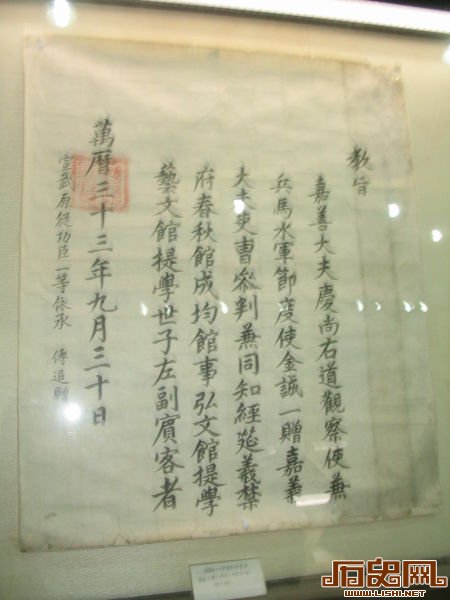 教旨
嘉善大夫慶尚右道觀察使兼
兵馬水軍節度使金誠一贈嘉義
大夫吏曹參判兼同知經筵義禁
府春秋館成均館事弘文館提學
藝文館提學世子左副賓客者
萬曆三十三年九月三十日
宣武原從功臣一等依承 傳追贈
历史网
WWW.LISHI.NET